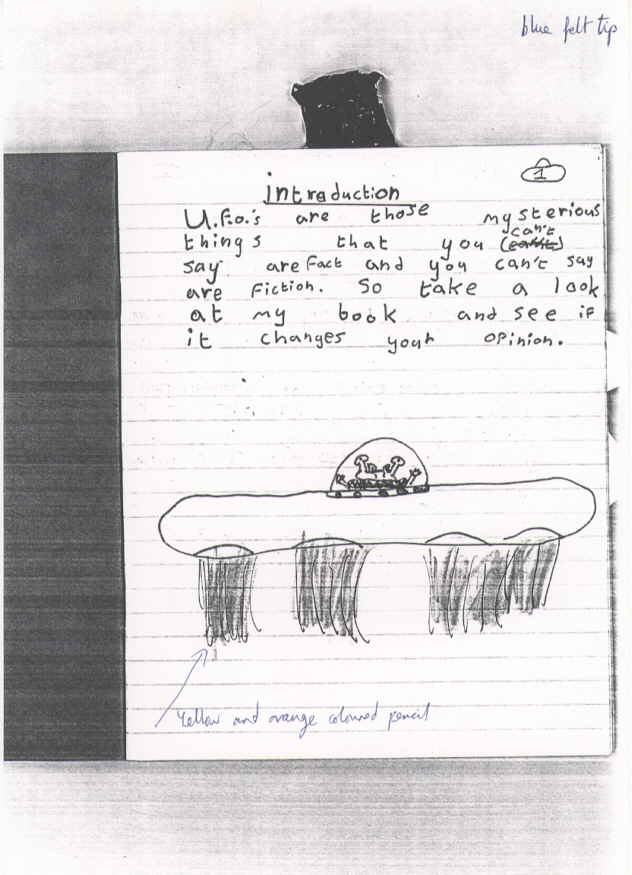 blue felt tip
1
introduction
U.F.O.'s are those mysterious
things that you (can't) can't
say are Fact and you can't say
are Fiction. So take a look
at my book and see if
it changes your opinion.
Yellow and orange coloured pencil